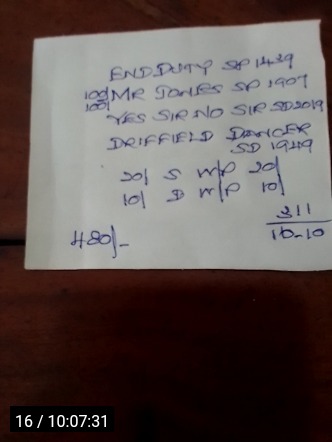 END DUTY SP 1439
100/ MR JONES SP 1907
100/ YES SIR NO SIR SD 2019
DRIFFIELD DANCER
SD 1949
20/ S W/P 20/
10/ D W/P 10/
311
480/- 10-10
16 / 10:07:31